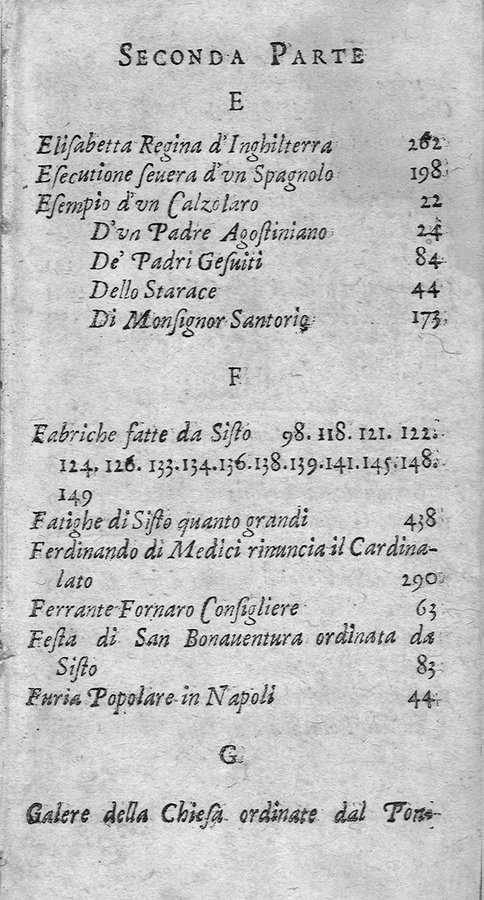 SECONDA PARTE
E
Eliſabetta Regina d'Inghilterra 262
Eſecutione ſeuera d'vn Spagnolo 198
Eſempio d'vn Calzolaro 22
D'vn Padre Agoſtiniano 24
De' Padri Geſuiti 84
Dello Starace 44
Di Monſignor Santorio 173
F
Fabriche fatte da Siſto 98. 118. 121. 122.
124. 126. 133. 134. 136. 138. 139. 141. 145. 148.
149
Fatighe di Siſto quanto grandi 438
Ferdinando di Medici rinuncia il Cardina-
lato 290
Ferrante Fornaro Conſigliere 63
Feſta di San Bonauentura ordinata da
Siſto 83
Furia Popolare in Napoli 44
G
Galere della Chieſa ordinate dal Pon-